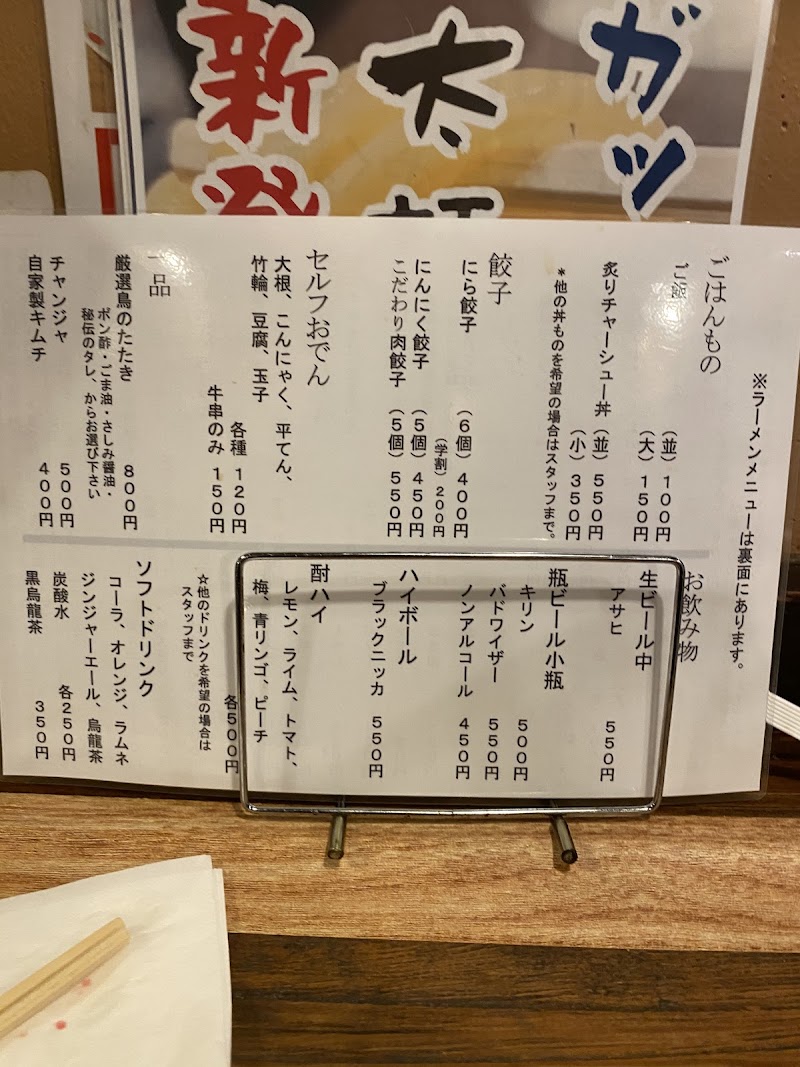 ガッ
太
新発
※ラーメンメニューは裏面にあります。
ごはんもの
ご飯 (並) 100円
(大) 150円
炙りチャーシュー丼 (並) 550円
(小) 350円
*他の丼ものを希望の場合はスタッフまで。
餃子
にら餃子 (6個) 400円
(学割) 200円
にんにく餃子 (5個) 450円
こだわり肉餃子 (5個) 550円
セルフおでん
大根、こんにゃく、平てん、
竹輪、豆腐、玉子
各種 120円
牛串のみ 150円
一品
厳選鳥のたたき 800円
ポン酢・ごま油・さしみ醤油・
秘伝のタレ、からお選び下さい
チャンジャ 500円
自家製キムチ 400円
お飲み物
生ビール中
アサヒ 550円
瓶ビール小瓶
キリン 500円
バドワイザー 550円
ノンアルコール 450円
ハイボール
ブラックニッカ 550円
酎ハイ
レモン、ライム、トマト、
梅、青リンゴ、ピーチ
各500円
☆他のドリンクを希望の場合は
スタッフまで
ソフトドリンク
コーラ、オレンジ、ラムネ
ジンジャーエール、烏龍茶
炭酸水 各250円
黒烏龍茶 350円